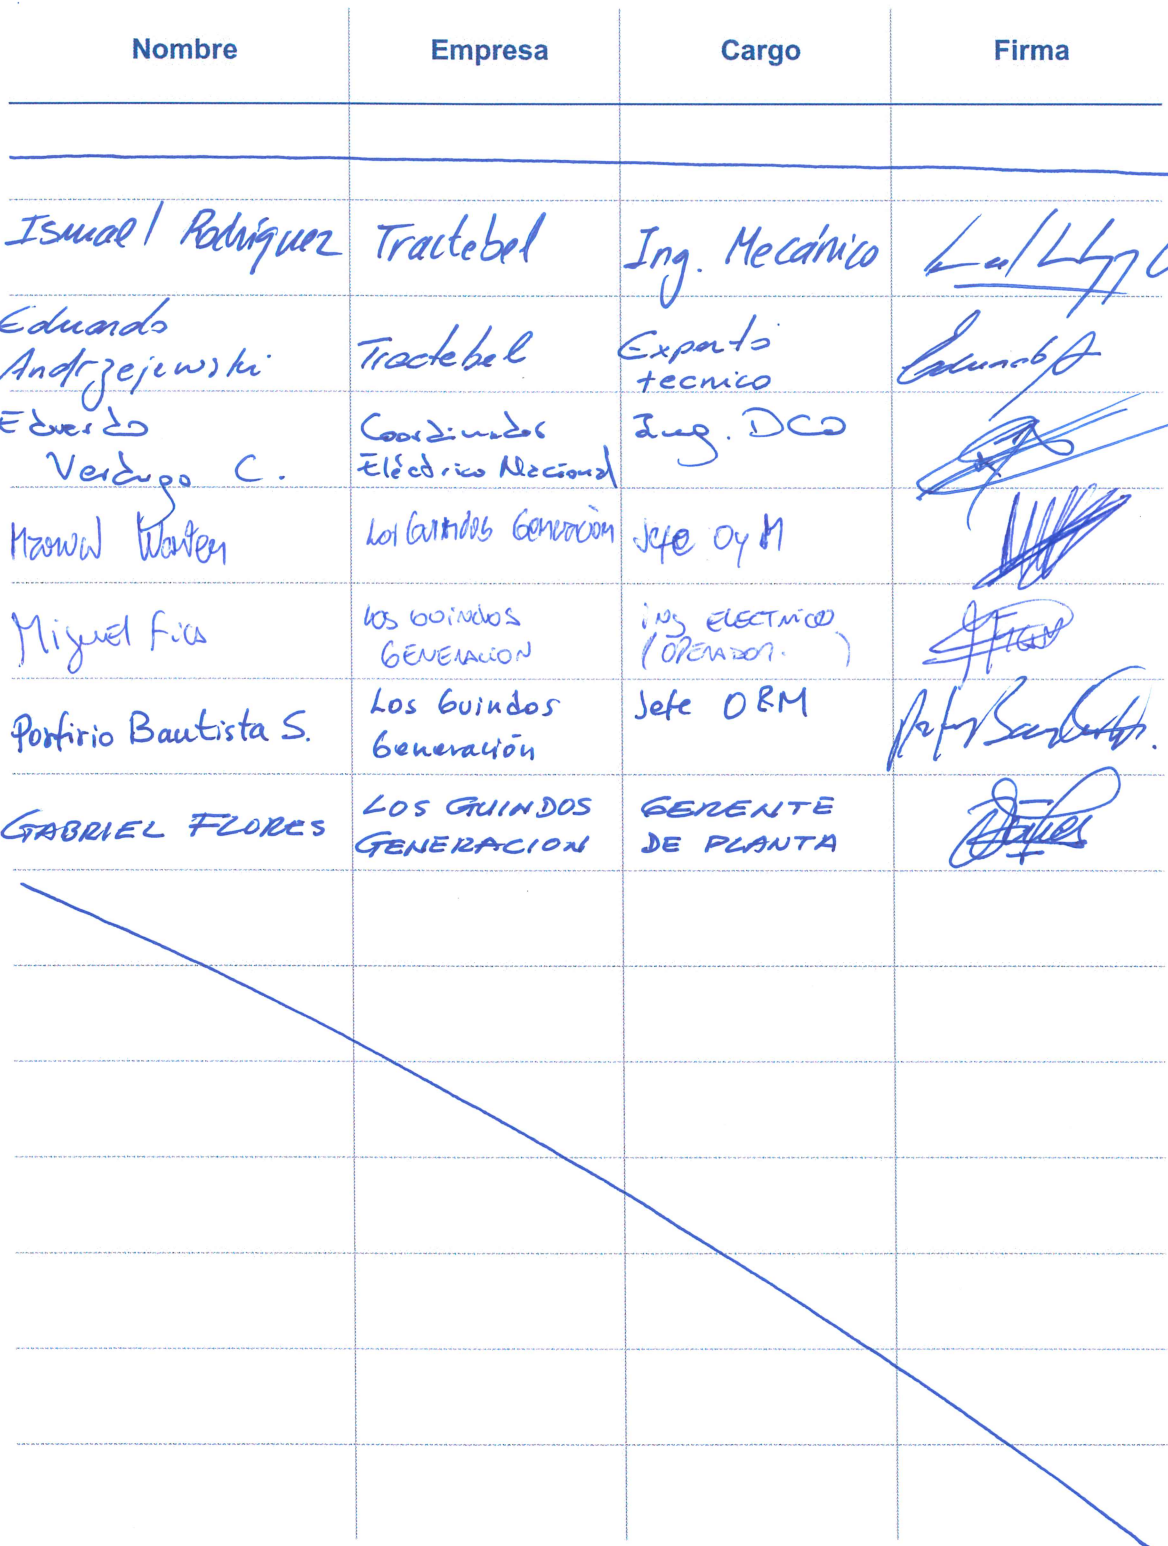 Nombre Empresa Cargo Firma
Ismael Rodríguez Tractebel Ing. Mecánico
Eduardo
Andrzejewski Tractebel Experto
tecnico
Eduardo
Verdugo C. Coordinador
Eléctrico Nacional Ing. DCO
Los Guindos Generación Jefe OyM
Miguel Fica Los Guindos
GENERACION ing ELECTRICO
(OPERADOR. )
Porfirio Bautista S. Los Guindos
Generación Jefe O&M
GABRIEL FLORES LOS GUINDOS
GENERACION GERENTE
DE PLANTA